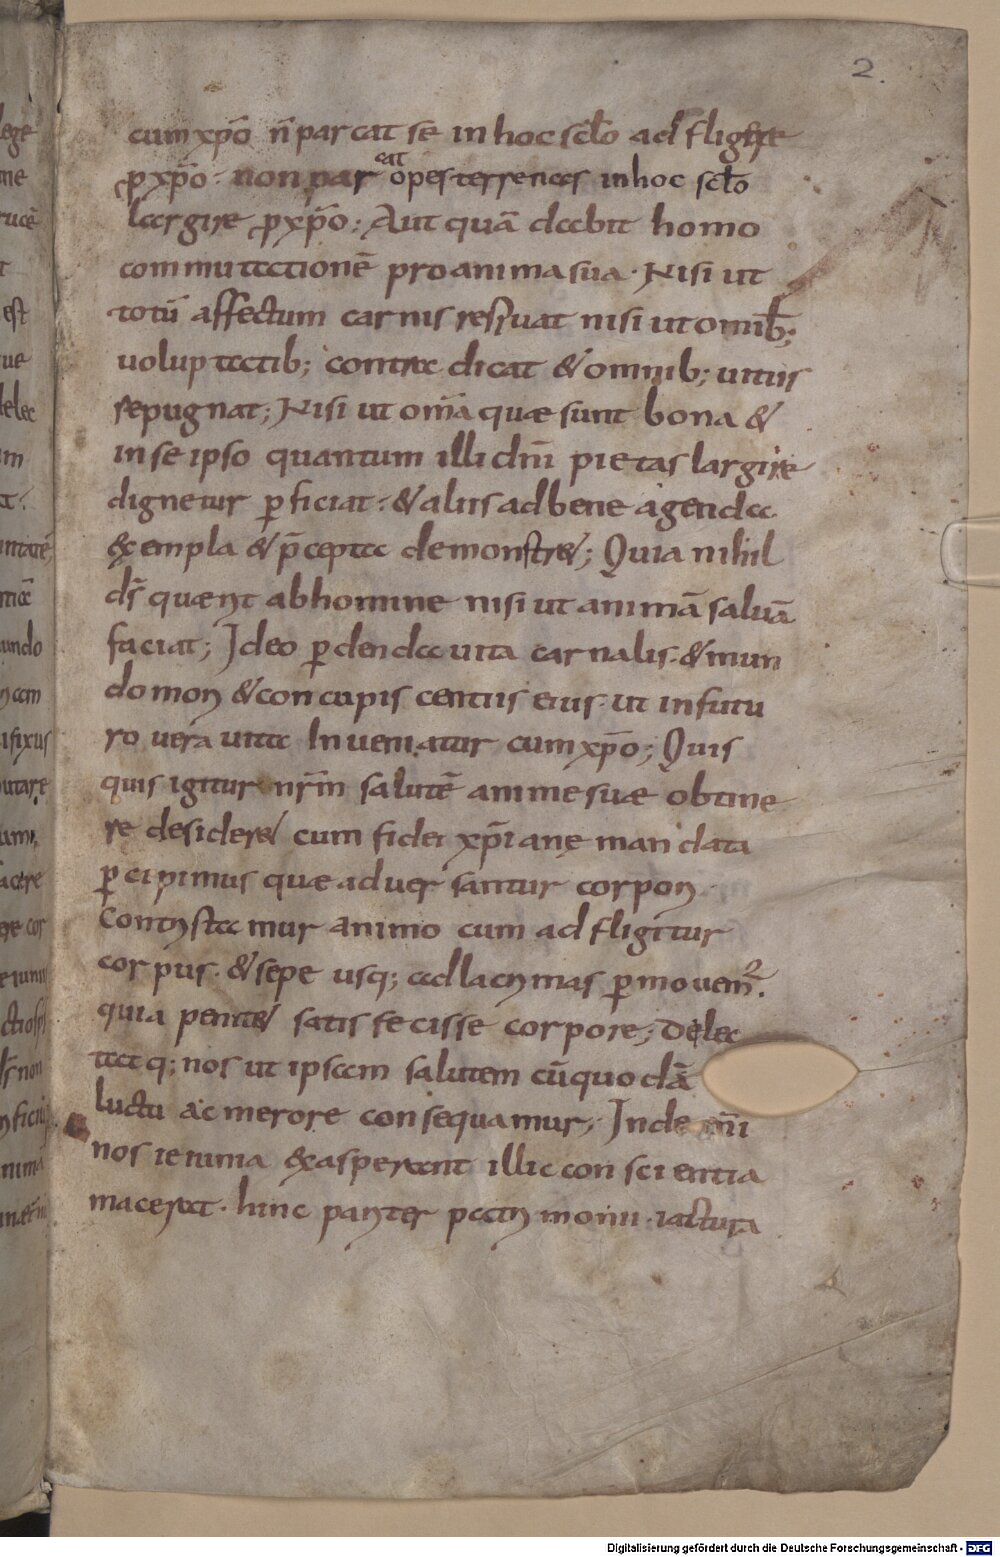 2.
cum xp̄o n̄ parcat se in hoc sc̄lo adfligere
ꝓ xp̄o· non parcat opes terrenas in hoc sc̄lo
largire ꝓ xp̄o; Aut quā dabit homo
commutationē pro anima sua· Nisi ut
totū affectum carnis respuat nisi ut omib;
uoluptatib; contradicat & omnib; uitiis
repugnat; Nisi ut om̄a quæ sunt bona &
in se ipso quantum illi dn̄i pietas largire
dignetur ꝑficiat· & aliis ad bene agenda
exempla & p̄cepta demonstr&; Quia nihil
dſ quærit ab homine nisi ut animā saluā
faciat; Ideo ꝑdenda uita carnalis· & mun
do mori & concupiscentiis eius· ut in futu
ro uera uita Inueniatur cum xp̄o; Quis
quis igitur nr̄m salutē anime suæ obtine
re desider& cum fidei xp̄iane mandata
ꝑcipimus quæ aduersantur corpori·
Contristamur animo cum adfligitur
corpus· & sepe usq; ad lacrimas ꝑmouem̄²·
quia penit& satisfecisse corpore; Delec
tatq; nos ut ipsam salutem cū quodā
luctu ac merore consequamur; Inde
nos ieiunia exasperant illic conscientia
macerat· hinc pariter patrimonii· iactura
Digitalisierung gefördert durch die Deutsche Forschungsgemeinschaft - DFG